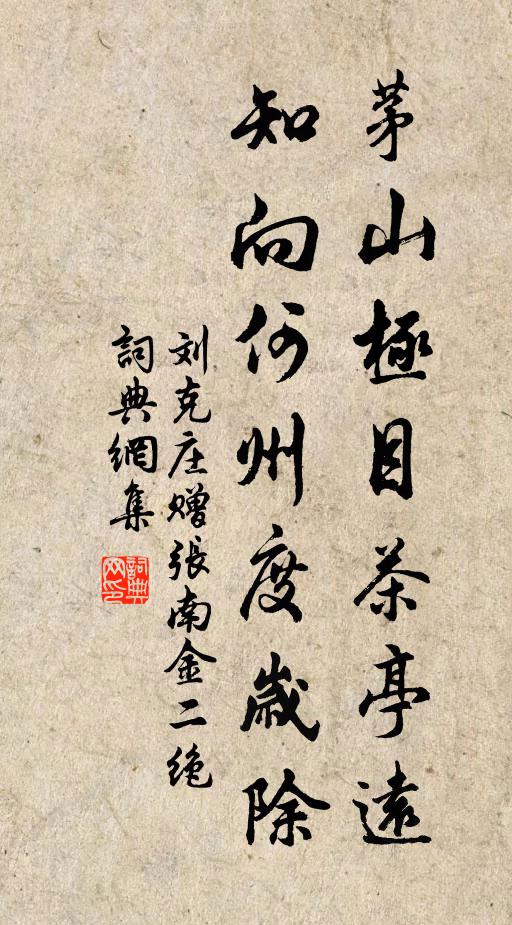 茅山極目茶亭遠
知向何州度歲除
刘克庄赠張南金二绝
詞典網集
詞典网印